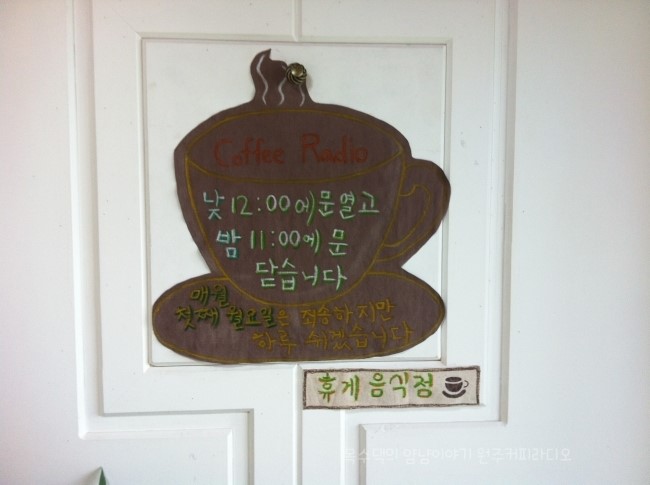 Coffee Radio
낮 12:00에 문열고
밤 11:00에 문
닫습니다
매월
첫째 월요일은 죄송하지만
하루 쉬겠습니다
휴게음식점
옥수댁의 염남이야기 원주커피라디오